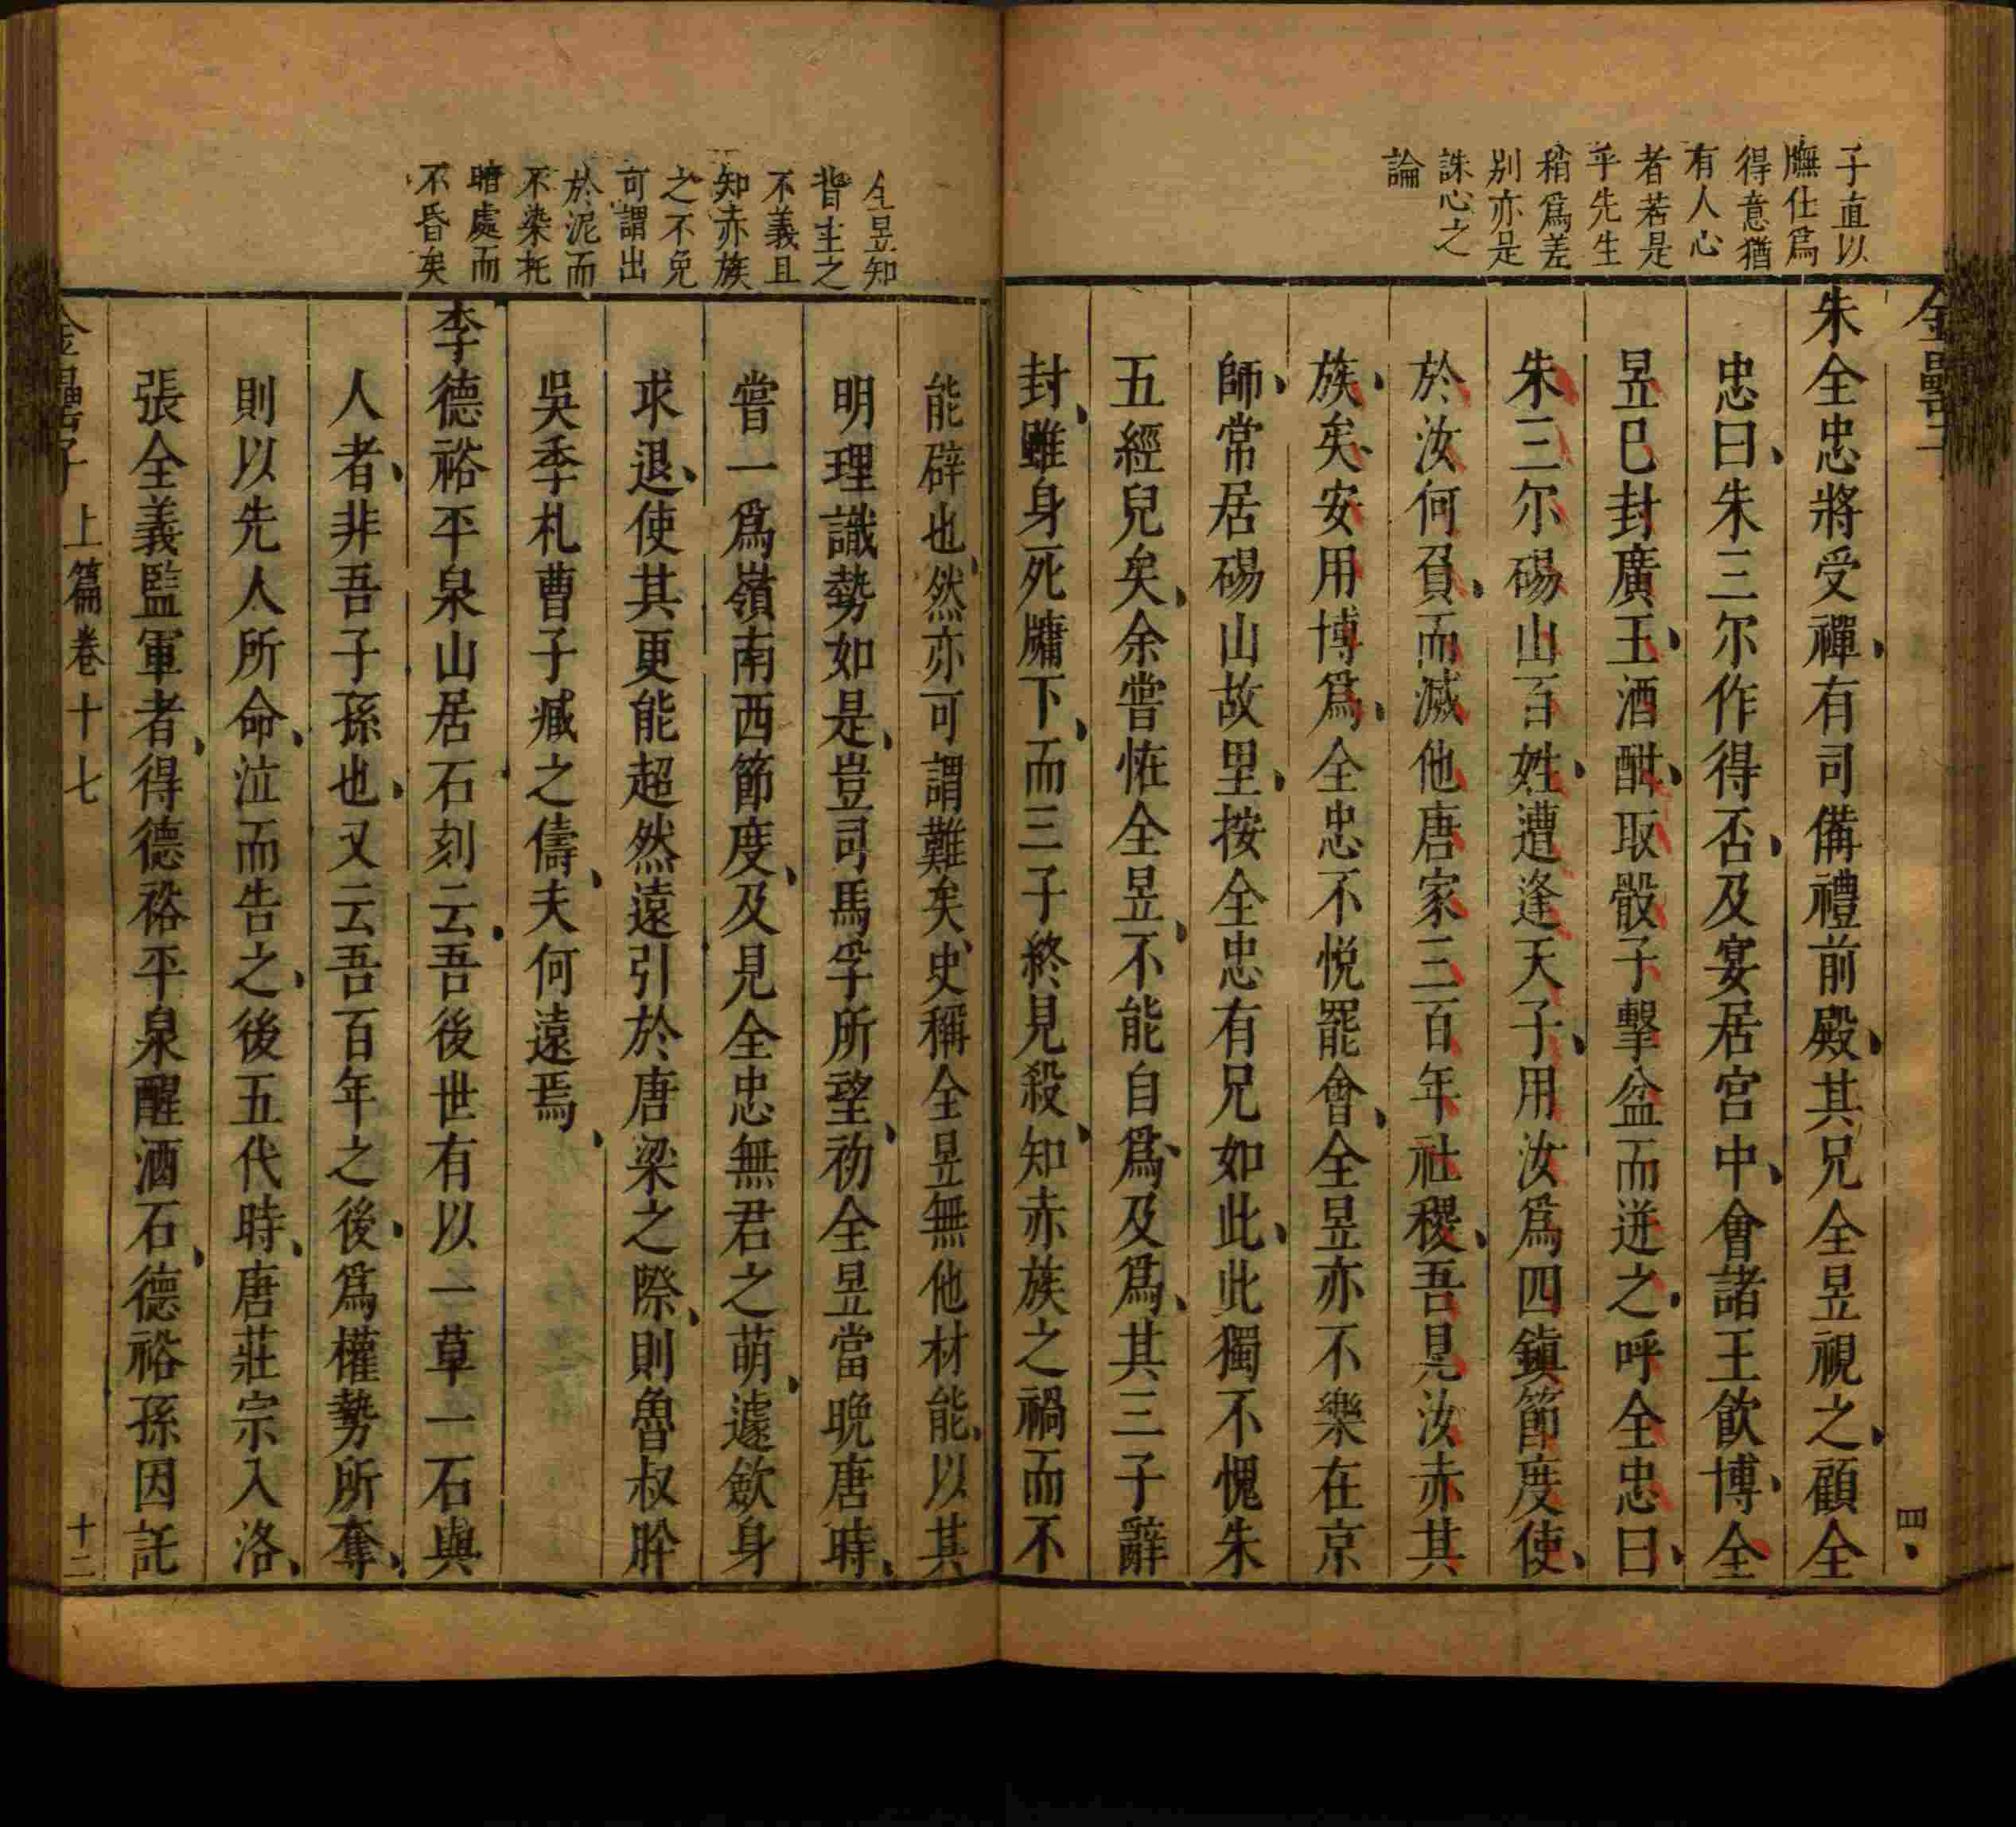 子直以
膴仕爲
得意猶
有人心
者若是
乎先生
稍爲差
别亦是
誅心之
論
朱全忠將受禪有司備禮前殿其兄全昱視之顧全
忠曰朱三尔作得否及宴居宫中會諸王飲博全
昱已封廣王酒酣取骰子擊盆而迸之呼全忠曰
朱三尔碭山百姓遭逢天子用汝爲四鎮節度使
於汝何負而滅他唐家三百年社稷吾見汝赤其
族矣安用博爲全忠不悦罷會全昱亦不樂在京
師常居碭山故里按全忠有兄如此此獨不愧朱
五經兒矣余嘗恠全昱不能自爲及爲其三子辭
封雖身死牖下而三子終見殺知赤族之禍而不
四
全昱知
背主之
不義且
知赤族
之不免
可謂出
於泥而
不染在
暗處而
不昏矣
能辟也然亦可謂難矣史稱全昱無他材能以其
明理識勢如是豈司馬孚所望初全昱當晚唐時
嘗一爲嶺南西節度及見全忠無君之萌遽歛身
求退使其更能超然遠引於唐梁之際則魯叔肸
吳季札曹子臧之儔夫何遠焉
李德裕平泉山居石刻云吾後世有以一草一石與
人者非吾子孫也又云吾百年之後爲權勢所奪
則以先人所命泣而告之後五代時唐莊宗入洛
張全義監軍者得德裕平泉醒酒石德裕孫因託
金罍子 上篇卷十七
十二